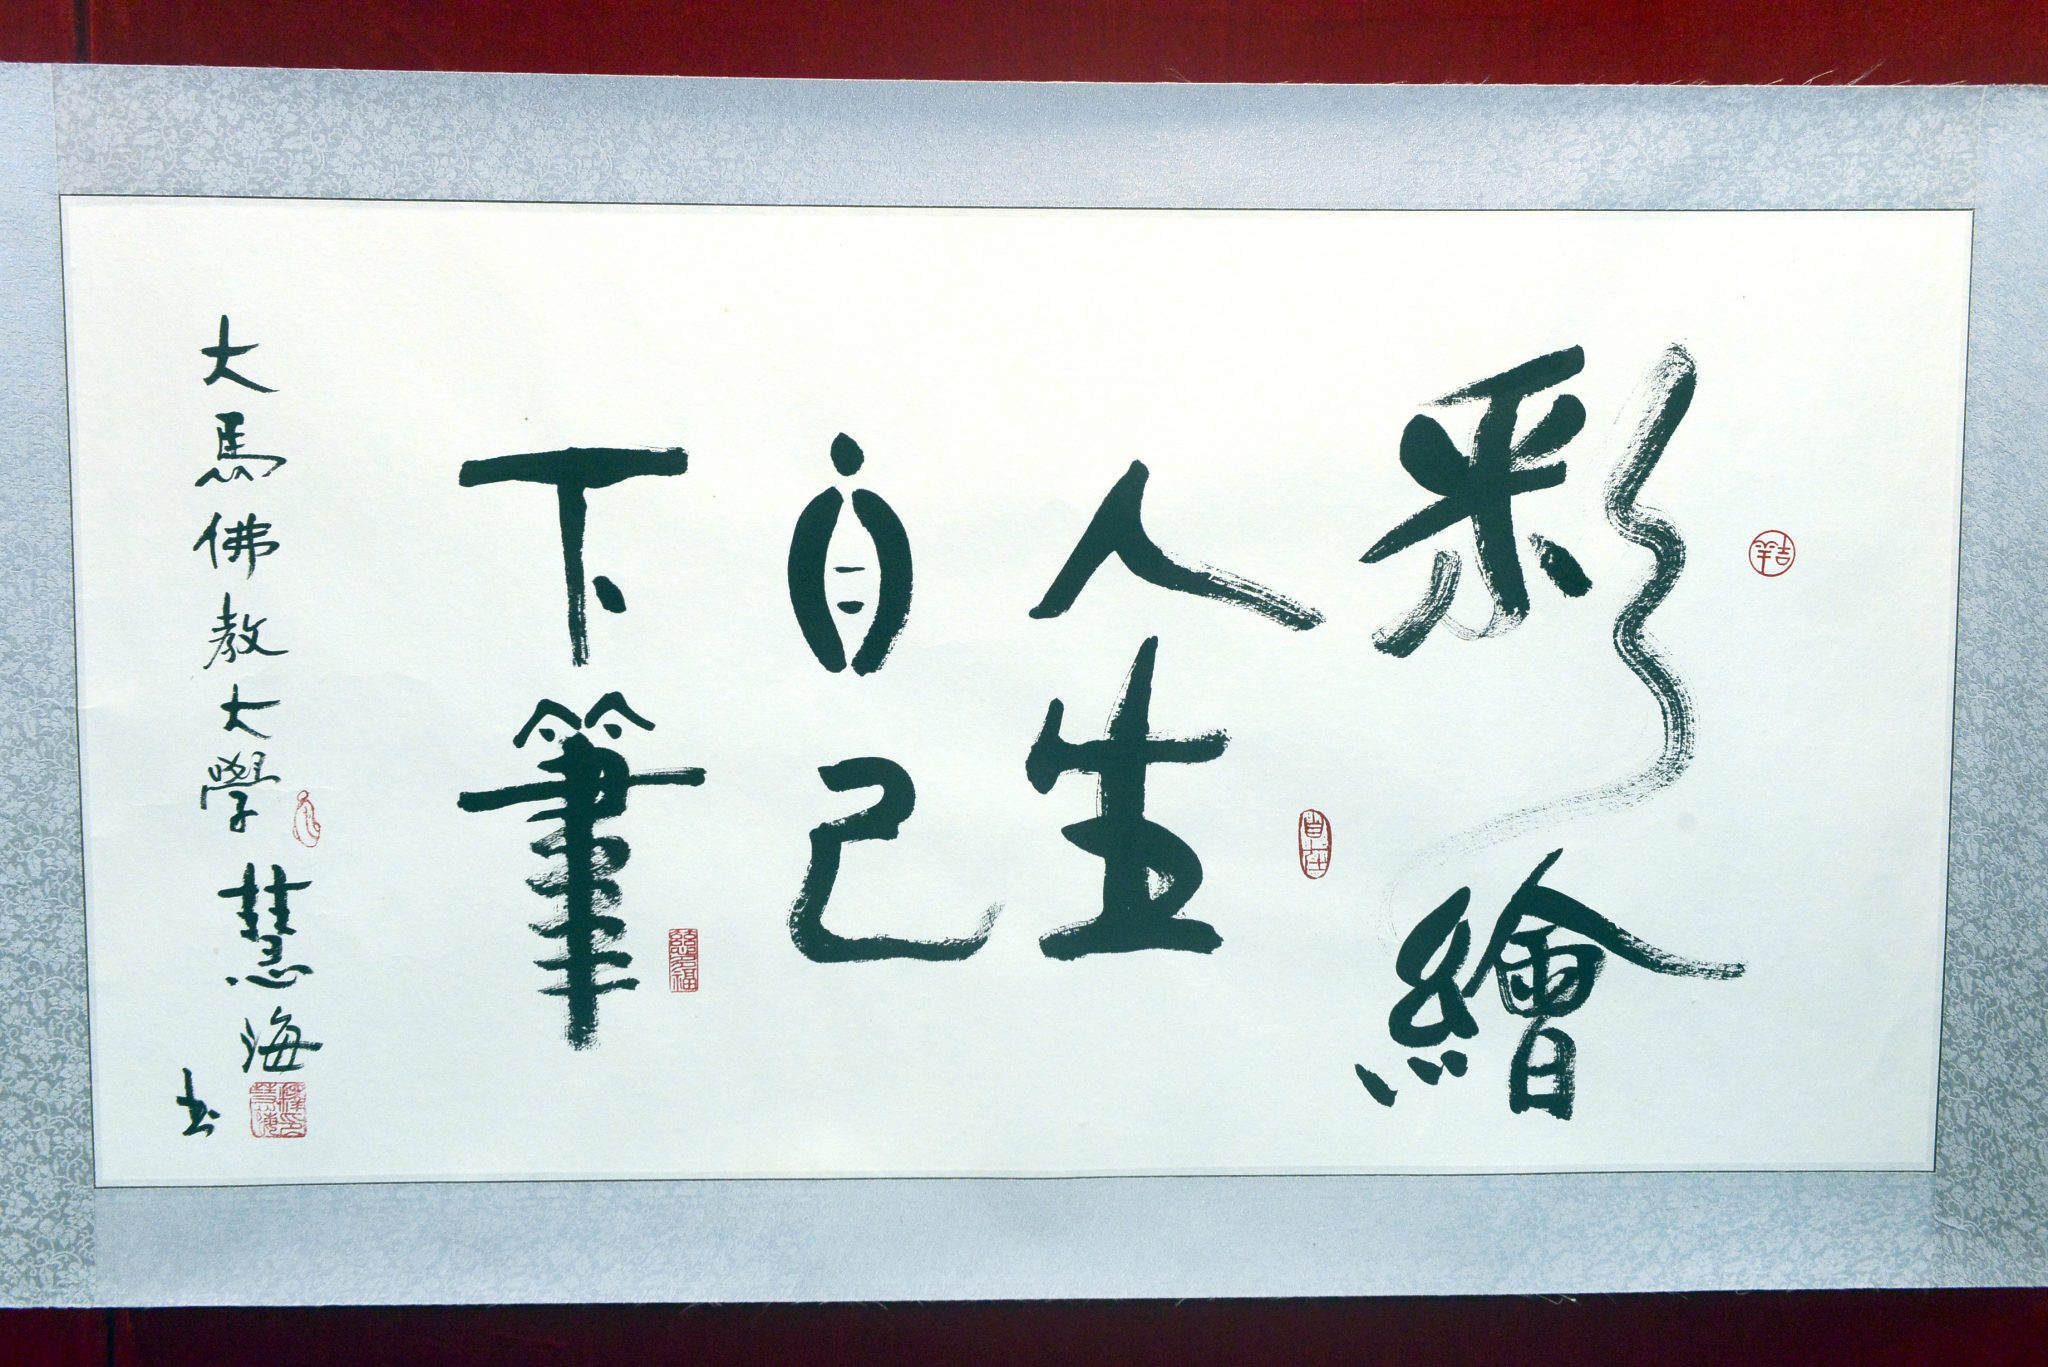 彩繪
人生
自己
下筆
大馬佛教大學
慧海
书
吉羊